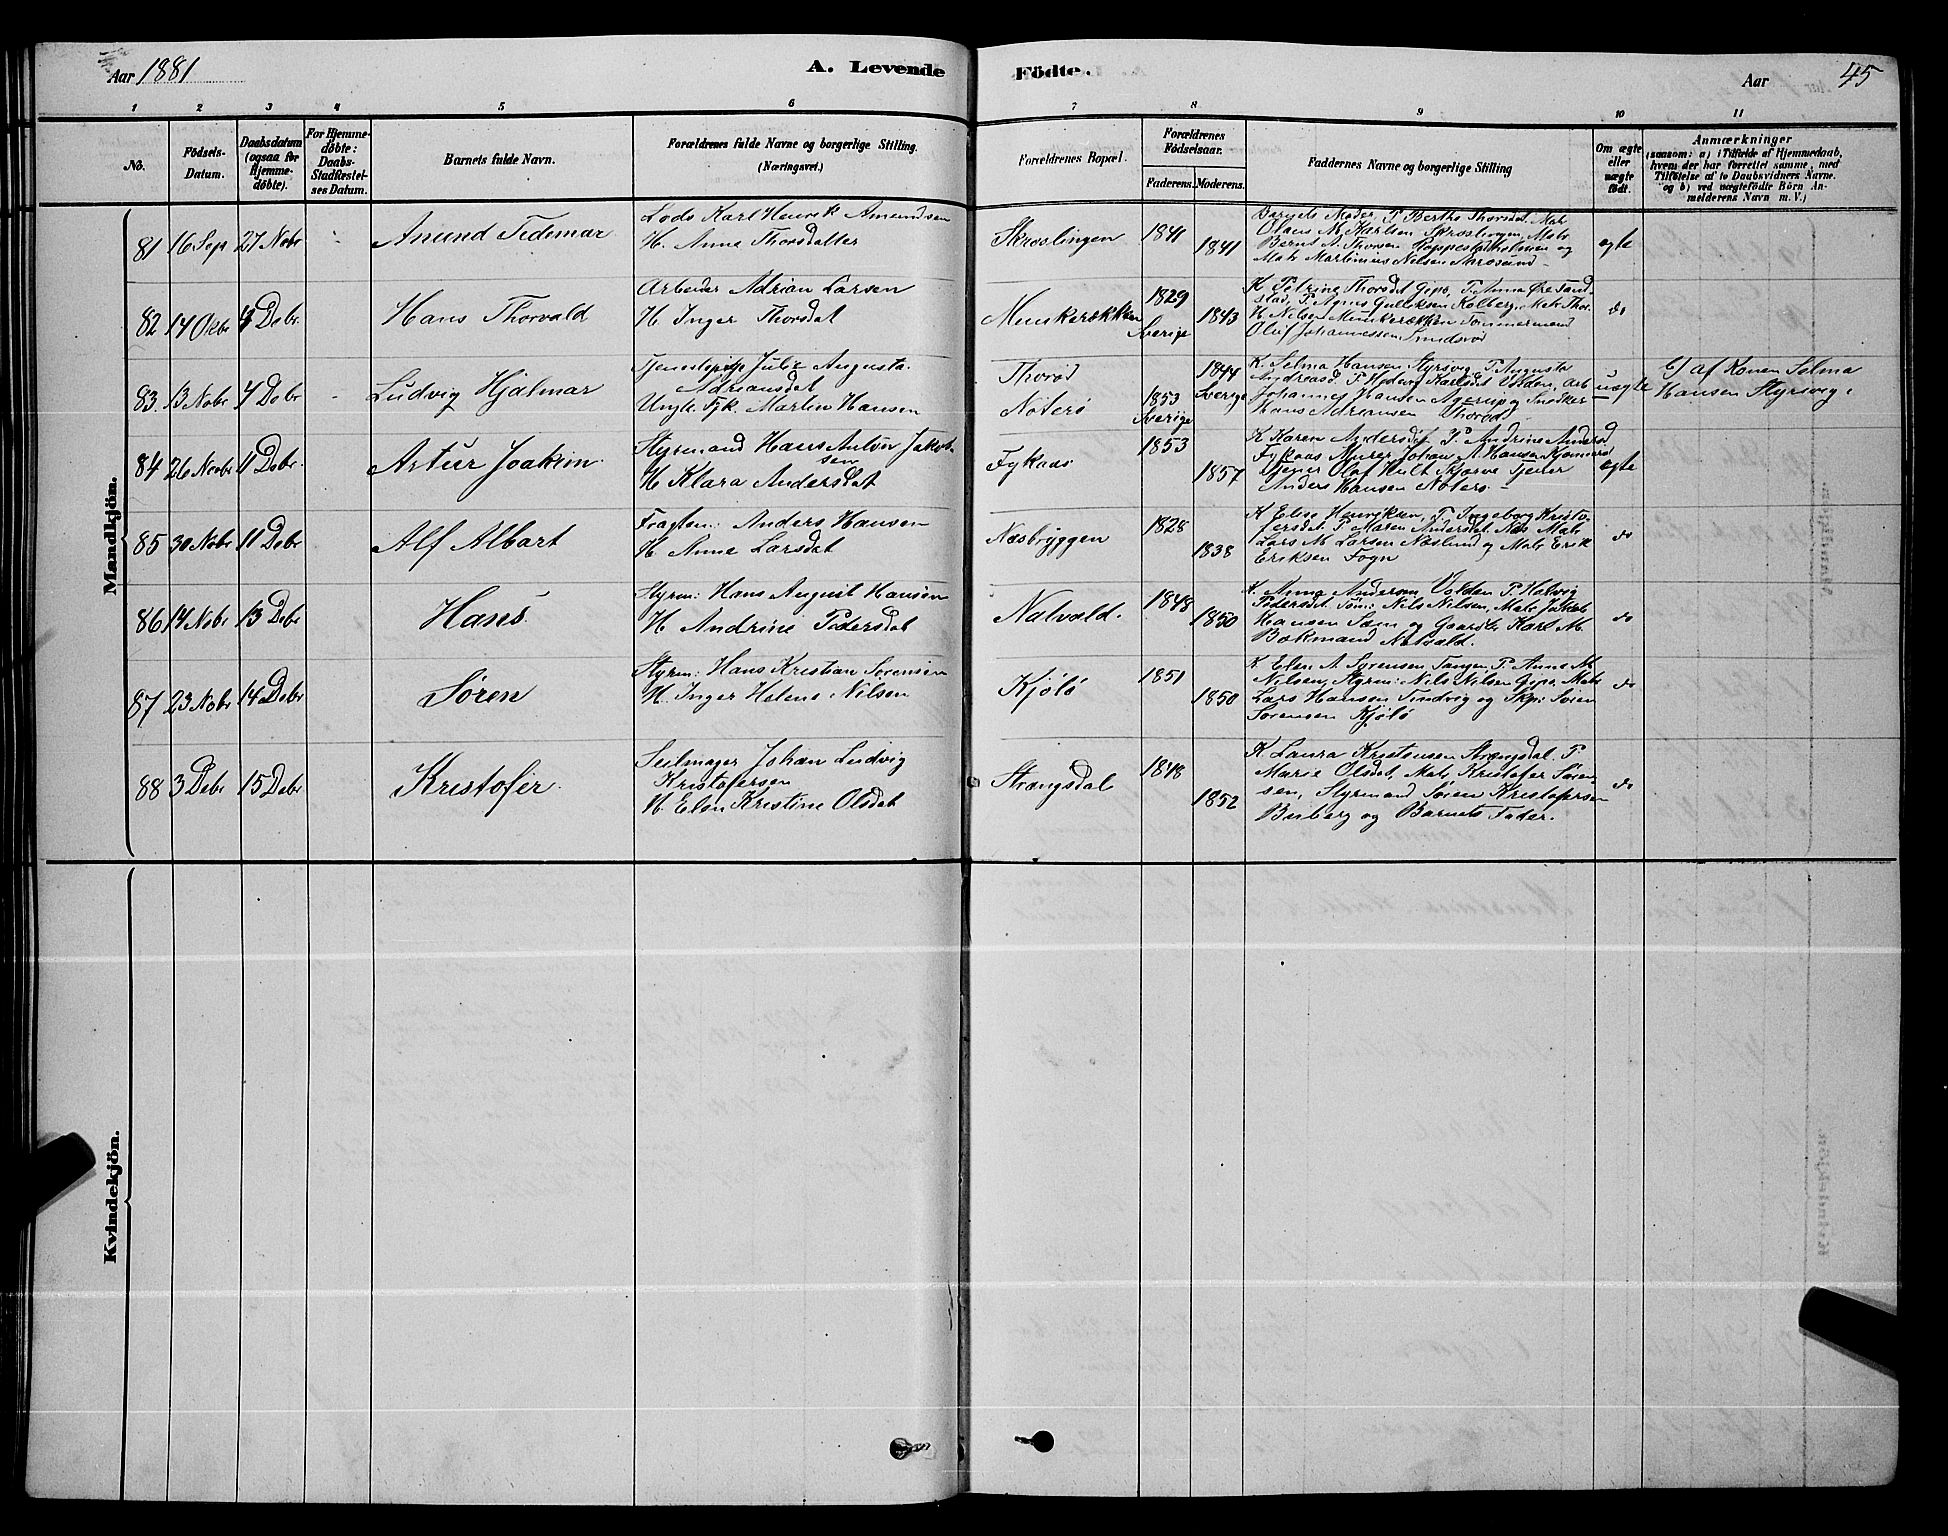 Aar 1881
A. Levende Födte.
Aar 45
1 2 3 4 5 6 7 8 9 10 11
No.
Födsels-
Datum.
Daabsdatum
(ogsaa for
Hjemme-
döbte).
For Hjemme-
döbte:
Daabs-
Stadfæstel-
ses Datum.
Barnets fulde Navn.
Forældrenes fulde Navne og borgerlige Stilling.
(Næringsvei.)
Forældrenes Bopæl.
Forældrenes
Födselsaar.
Faderens. Moderens.
Faddernes Navne og borgerlige Stilling
Om ægte
eller
uægte
födt.
Anmærkninger
(saasom: a) i Tilfælde af Hjemmedaab,
hvem der har forrettet samme, med
Tilföielse af to Daabsvidners Navne.
og b) ved uægtefödte Börn An-
melderens Navn m. V.)
Mandkjön.
81 16 Sep 27 Nobr
Amund Tidemar
Lods Karl Henrik Amundsen
H. Anne Thorsdatter
Skroslingen
1841
1841
Barnets Moder, P. Berthe Thorsdat, Mat
Olaus M. Karlsen Skroslingen, Mats
Bernt A. Thorsen
Mats Martinius Nelsen
ægte
82 14 Okbr 4 Debr
Hans Thorvald
Arbeider Adrian Larsen
H. Inger Thorsdat
Munkerækken
1829
Sverige
1843
K. Petrine Thorsdat Gipø, P. Anna Øre Sand
stad, P. Agnes Gulliksen Kolberg, Mats Thor
H. Nilsen Munkerækken Tømmermand
Oluf Johannessen Smidsrød
do
83 13 Nobr 4 Debr -
Ludvig Hjalmar
Tjenestepige Julie Augusta
Adriansdat
Ungk. Fyk. Martin Hansen
Thorød
Nøterø
1853
Sverige
1844
Sverige
K. Selma Hansen Styrsvig, P. Augusta
Andreasd. P. Hedvig Karlsdt Volden, Arb
Johannes Hansen Agerup og Snedker
Hans Adriansen Thorød
uægte
af Konen Selma
Hansen Styrsvig
84 26 Nobr 11 Debr
Artur Joakim
Styrmand Hans Anton Jakob
sen
H. Klara Andersdat
Fykaas
1853
1857
K Karen Andersdt, P. Andrine Andersd
Fykaas Murer Johan A. Hansen Kjømmerød
Tjener Olaf Hult Skjerve Tjener
Anders Hansen Nøterø
ægte
85 30 Nobr 11 Debr
Alf Albart
Fragtem: Anders Hansen
H. Anne Larsdat
Næsbryggen
1828
1838
K Elise Henriksen, P. Ingeborg Kristo
fersdat, P. Maren Andersdat Næs, Mats
Lars M. Larsen Næslund og Mats Erik
Eriksen Fogn
do
86 14 Nobr 13 Debr
Hans
Styrm: Hans August Hansen
H. Andrine Pedersdat
Natvald.
1848
1850
K. Anna Andersen Volden P. Hatvig
Pedersdt. Tøm: Nils Nilsen, Mats Jakob
Hansen Søm og Gaardbr Karl M.
Bokmand Natvald.
do
87 23 Nobr 14 Debr
Søren
Styrm: Hans Kristian Sørensen
H. Inger Helene Nilsen
Kjølø
1851
1850
K. Elen A. Sørensen Tangen, P. Anna M.
Nilsen, Styrm: Nils Nilsen Gipø, Mats
Lars Hansen Tindvig og Skp: Søren
Sørensen Kjølø
do
88 3 Debr 15 Debr
Kristofer
Seilmager Johan Ludvig
Kristofersen
H. Elen Kristine Olsdat
Strengsdal
1848
1852
K. Laura Kristensen Strengsdal. P.
Marie Olsdat, Mats Kristofer Søren
sen, Styrmand Søren Kristofersen
Buberg og Barnets Fader.
do
Kvindekjön.